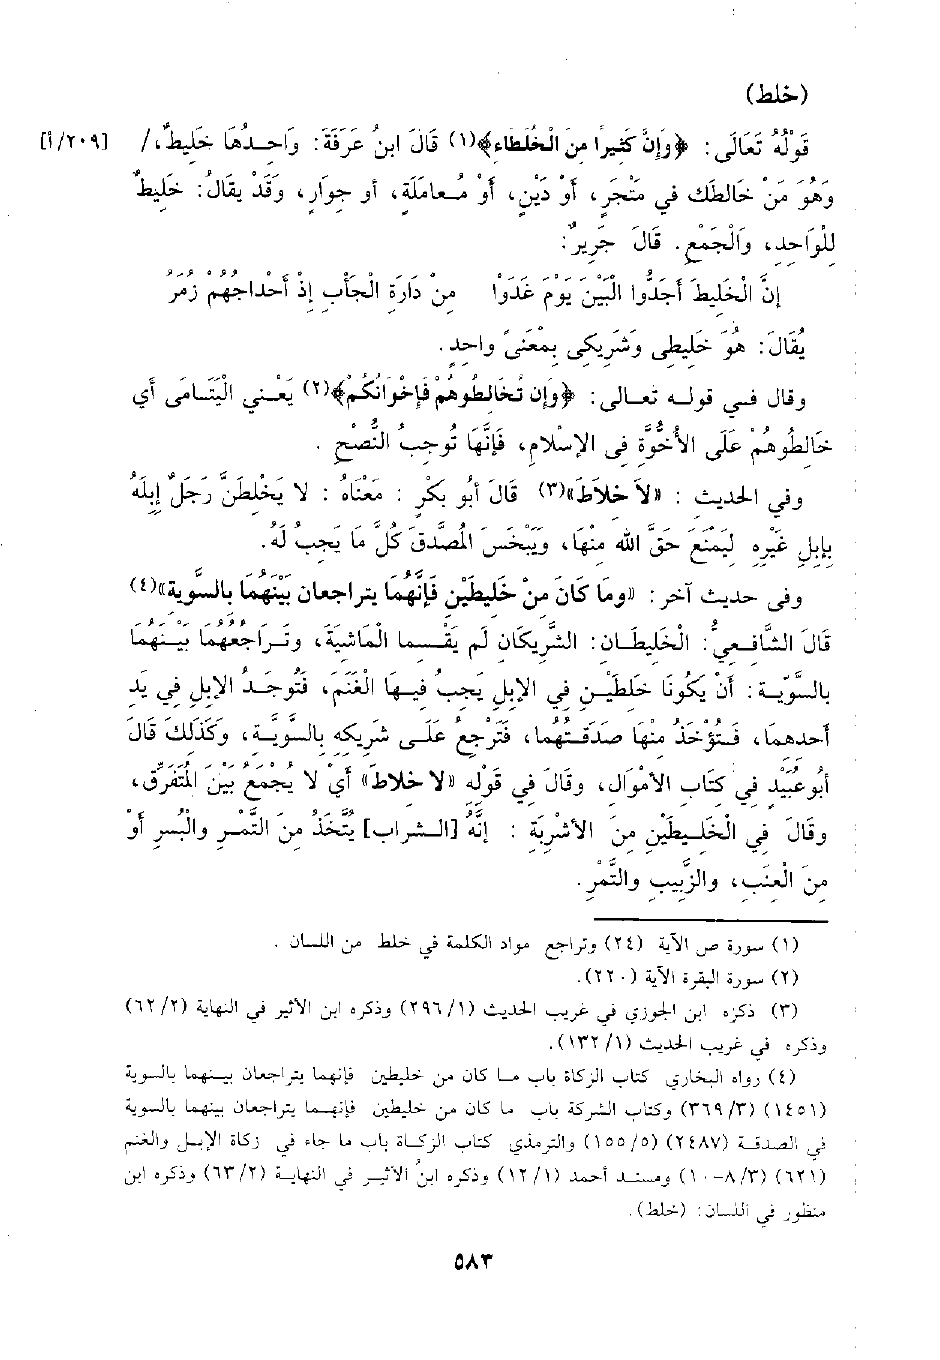 (خلط)
قَوْلُهُ تَعَالَى: ﴿وَإِنَّ كَثِيراً مِنَ الْخُلَطَاءِ﴾(١) قَالَ ابنُ عَرَفَةَ: وَاحِدُهَا خَلِيطٌ، / [٢٠٩/أ]
وَهُوَ مَنْ خَالطَكَ في مَتْجَرٍ، أَوْ دَيْنٍ، أَوْ مُعامَلَةٍ، أو جِوَارٍ، وَقَدْ يقَالُ: خَلِيطٌ
للْوَاحِدِ، وَالْجَمْعِ. قَالَ جَرِيرٌ:
إِنَّ الْخَلِيطَ أَجَدُّوا الْبَيْنَ يَوْمَ غَدَوْا مِنْ دَارَةِ الْجَأْبِ إِذْ أَحْدَاجُهُمْ زُمَرُ
يُقَالَ: هُوَ خَلِيطِى وَشَرِيكِى بِمَعْنىً واحِدٍ.
وقال فـي قولـه تعـالى: ﴿وَإِن تُخَالِطُوهُمْ فَإِخْوَانُكُمْ﴾(٢) يَعْنِي الْيَتَامَى أي
خَالِطُوهُمْ عَلَى الأُخُوَّةِ فِى الإِسْلَامِ، فَإِنَّهَا تُوجِبُ النُّصْحَ .
وفي الحديث : «لاَ خِلاَطَ»(٣) قَالَ أَبُو بَكْرٍ : مَعْنَاهُ : لا يَخْلِطَنَّ رَجُلٌ إِبِلَهُ
بِإِبلِ غَيْرِهِ لِيَمْنَعَ حَقَّ اللهِ مِنْهَا، وَيَبْخَسَ الْمُصَدِّقَ كُلَّ مَا يَجِبُ لَهُ.
وفى حديث آخر: «وَمَا كَانَ مِنْ خَلِيطَيْنِ فَإِنَّهُمَا يتراجعان بَيْنَهُمَا بالسَّوِيَةِ»(٤)
قَالَ الشَّافِعِيُّ: الْخَلِيطَـانِ: الشَّرِيكَانِ لَمْ يَقْـسِمـا الْمَاشِيَةَ، وتَـرَاجُعُهُمَا بَيـنَهُمَا
بالسَّوِيَّـةِ: أَنْ يَكُونَا خَلِطَيْنِ في الإبِلِ يَجِبُ فِيـهَا الْغَنَمُ، فَتُوجَـدُ الإبلِ في يَدِ
أحدهمَا، فَـتُؤْخَذُ مِنْهَا صَدَقَـتُهُمَا، فَتَرْجِعُ عَلَـى شَرِيكِهِ بالسَّوِيَّـةِ، وَكَذلِكَ قَالَ
أبُو عُبَيْدٍ فِي كتَابِ الأمْوَالِ، وقَالَ في قَوْلِهِ «لا خِلاطَ» أَيْ لا يُجْمَعُ بَيْنَ الْمُتَفَرِّقِ،
وَقَالَ في الْخَلِيطَيْنِ مِنَ الأَشْرِبَةِ : إِنَّهُ [الـشراب] يُتَّخَذُ مِنَ التَّمْـرِ والْبُسْرِ أَوْ
مِنَ الْعِنَبِ، والزَّبِيبِ والتَّمْرِ.
(١) سورة ص الآية (٢٤) وتراجع مواد الكلمة في خلط من اللسان .
(٢) سورة البقرة الآية (٢٢٠).
(٣) ذكره ابن الجوزي في غريب الحديث (٢٩٦/١) وذكره ابن الأثير في النهاية (٦٢/٢)
وذكره في غريب الحديث (١٣٢/١).
(٤) رواه البخاري كتاب الزكاة باب مـا كان من خليطين فإنهما يتراجعان بيـنهما بالسوية
(١٤٥١) (٣٦٩/٣) وكتاب الشركة باب ما كان من خليطين فإنهـما يتراجعان بينهما بالسوية
في الصدقـة (٢٤٨٧) (١٥٥/٥) والترمذي كتاب الزكـاة باب ما جاء في زكاة الإبـل والغنم
(٦٢١) (٨/٣-١٠) ومسنـد أحمد (١٢/١) وذكره ابنُ الأثيـر في النهايـة (٦٣/٢) وذكره ابن
منظور في اللسان: (خلط).
٥٨٣